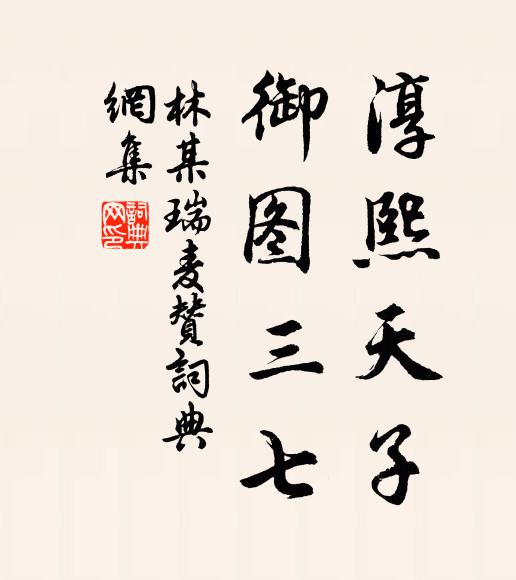 淳熙天子
御图三七
林某瑞麦赞詞典
網集
詞典
网印